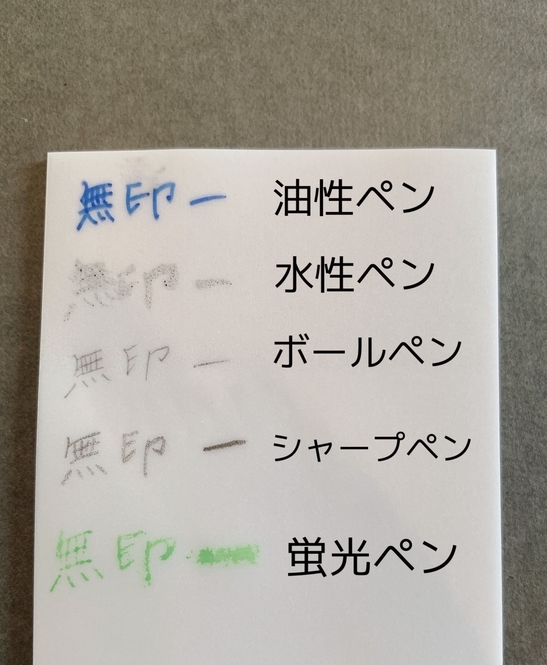 無印ー 油性ペン
無印ー 水性ペン
無印ー ボールペン
無印ー シャープペン
無印ー 蛍光ペン